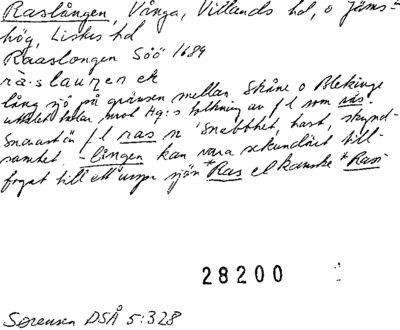 Raslången, Vånga, Villands hd, o Jäms-
hög, Listes hd
Raaslongen Söö 1684
rà·slaŋen ek
lång sjö på gränsen mellan Skåne o Blekinge
uttalet talar mot Hg:s tolkning av f l som rås-
Snarast ö f l ras n 'snabbhet, hast, skynd-
samhet. -lången kan vara sekundärt till-
fogat till ett urspr sjön *Ras el kanske *Rasi
28200
Sørensen DSÅ 5:328